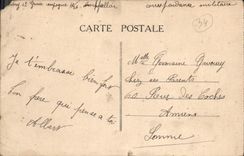 correspondance militaire
34
CARTE POSTALE
Je t'embrasse bien fort
Ton père qui pense a toi
Albert
Melle Germaine
chez ses Parents
60 Rue des
Amiens
Somme